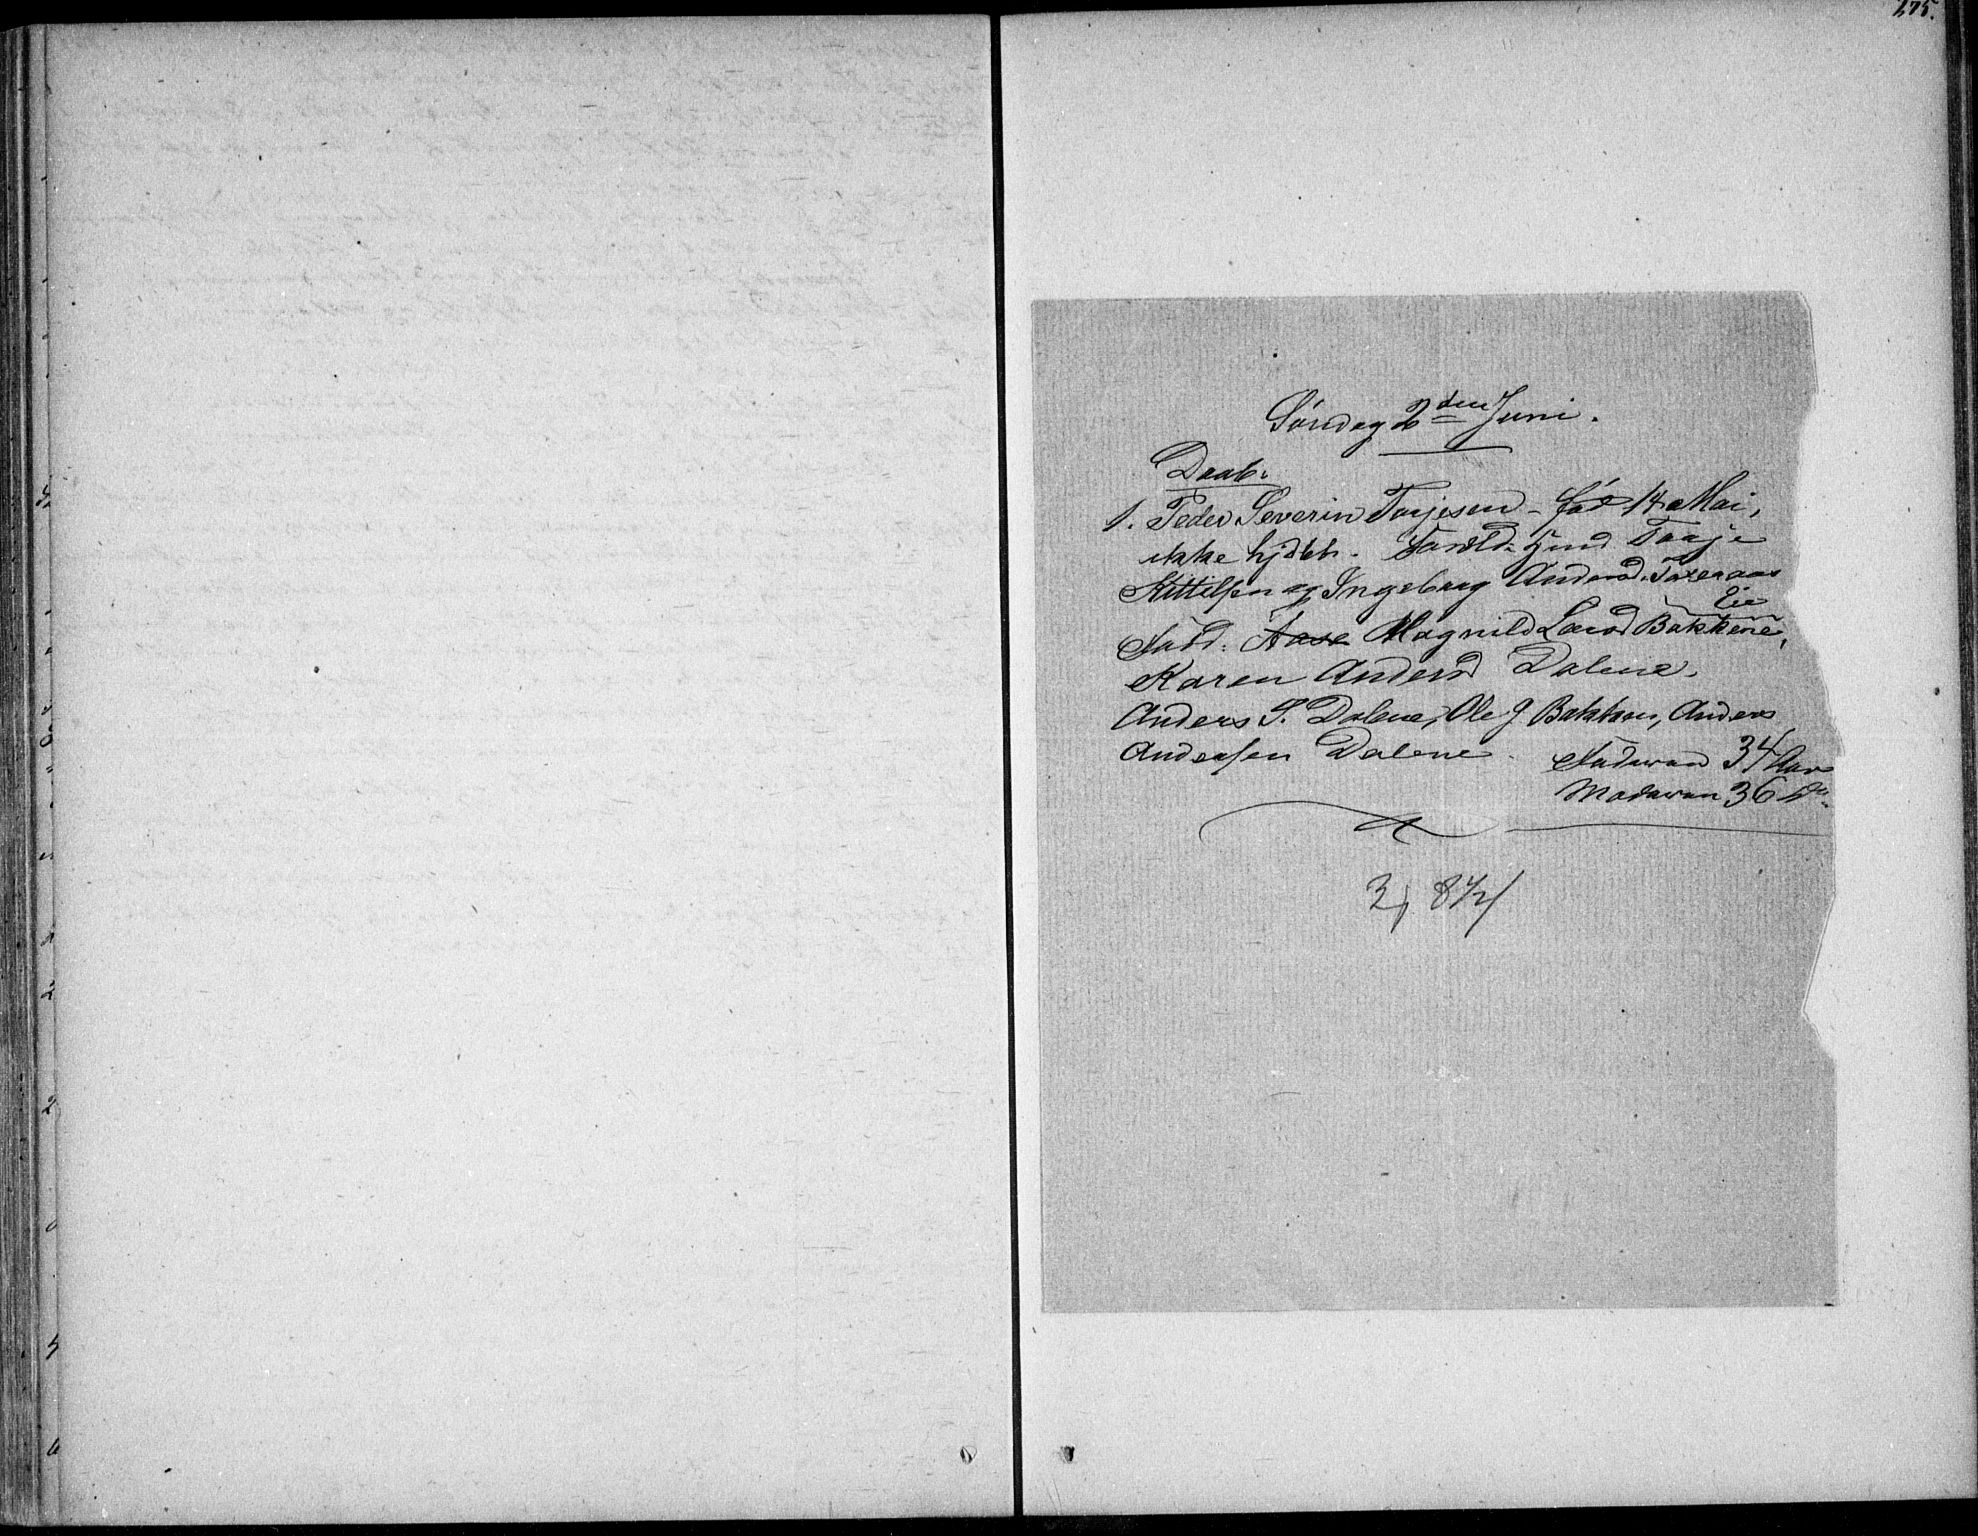 275.
Søndag 2den Juni.
Daab:
1. Peder Severin Torjesen - fød 14 Mai,
ikke hjdbt. Foreld: Gmd Torje
Kittilsen og Ingeborg Andersd.
Eie
Fadd: Aase Magnild Larsd Bakkene,
Karen Andersd Dalene.
Anders P. Dalene, Ole J Bakken, Anders
Andersen Dalene. Faderen 34 Aar
Moderen 36 Do.